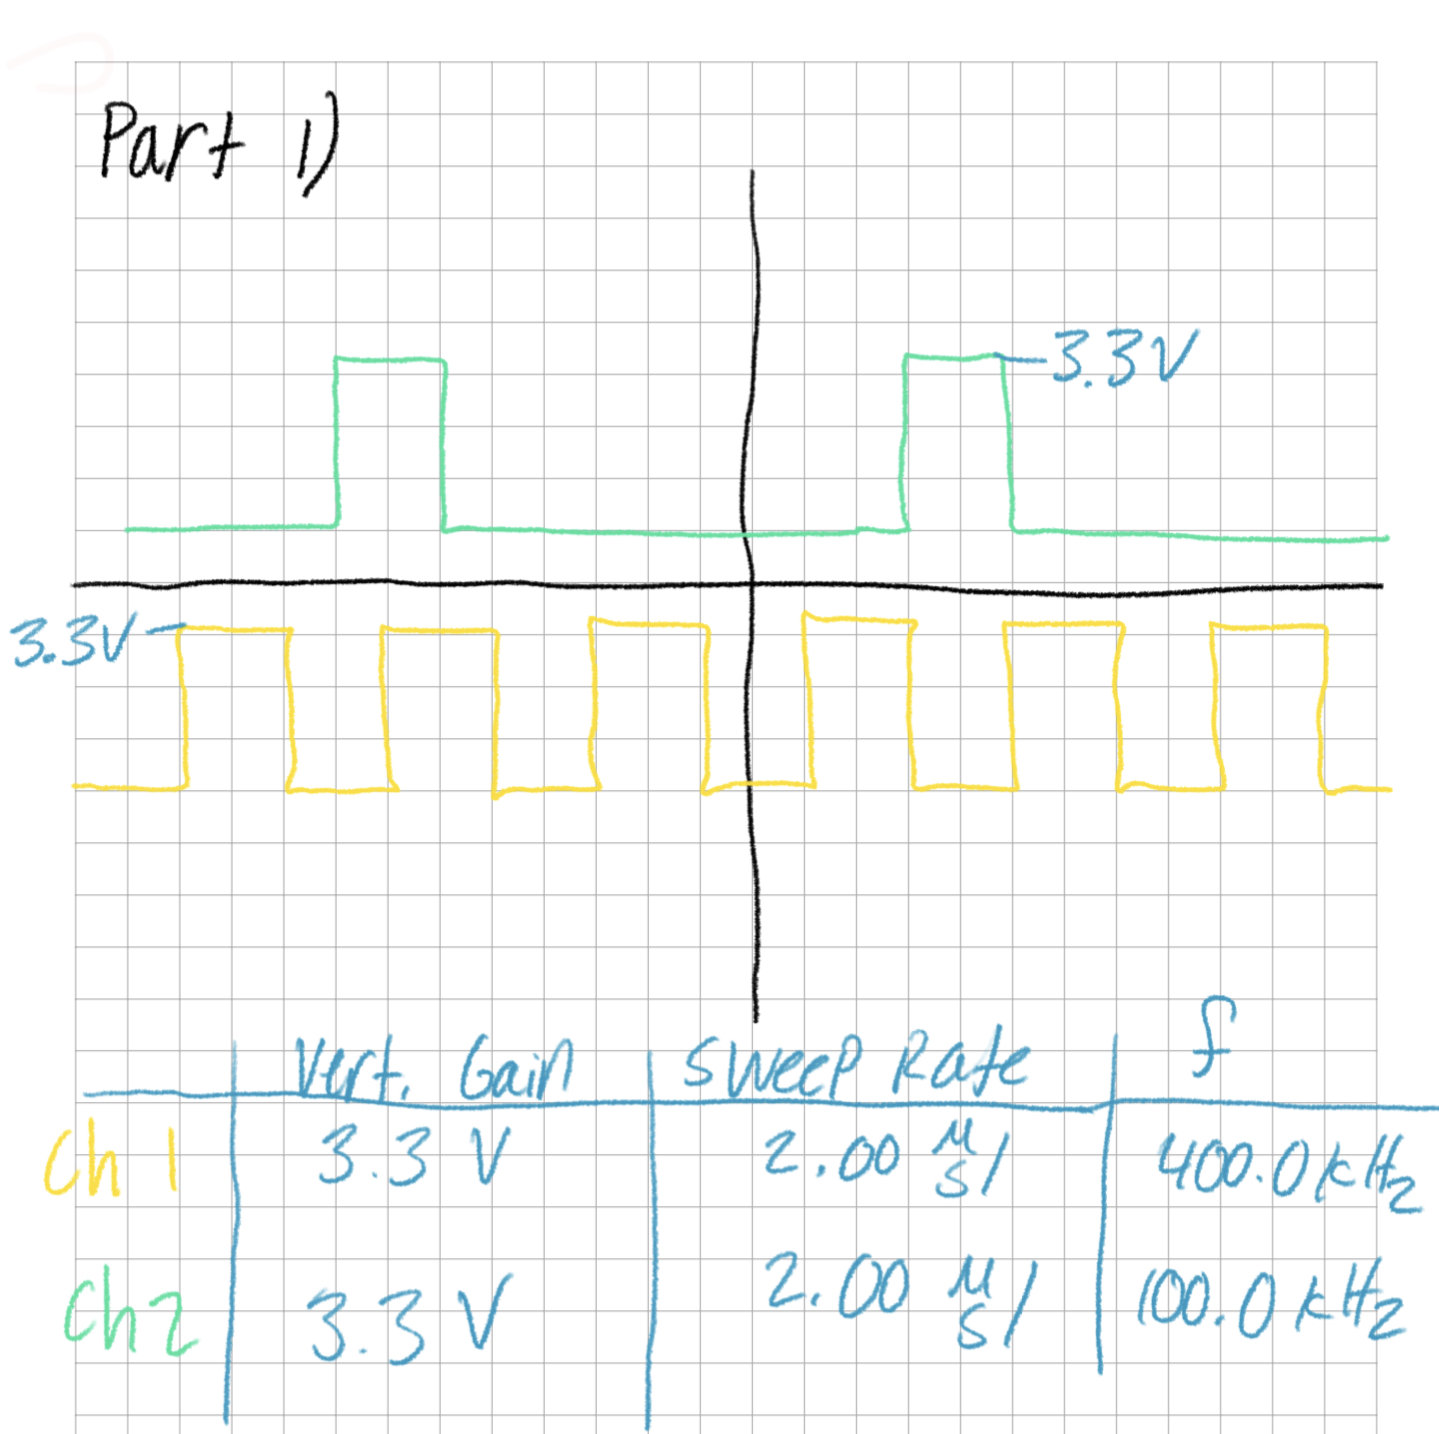 Part 1)
3.3V
3.3V
Vert. Gain Sweep Rate f
Ch 1 3.3 V 2.00 μs/ 400.0 kHz
Ch2 3.3 V 2.00 μs/ 100.0 kHz